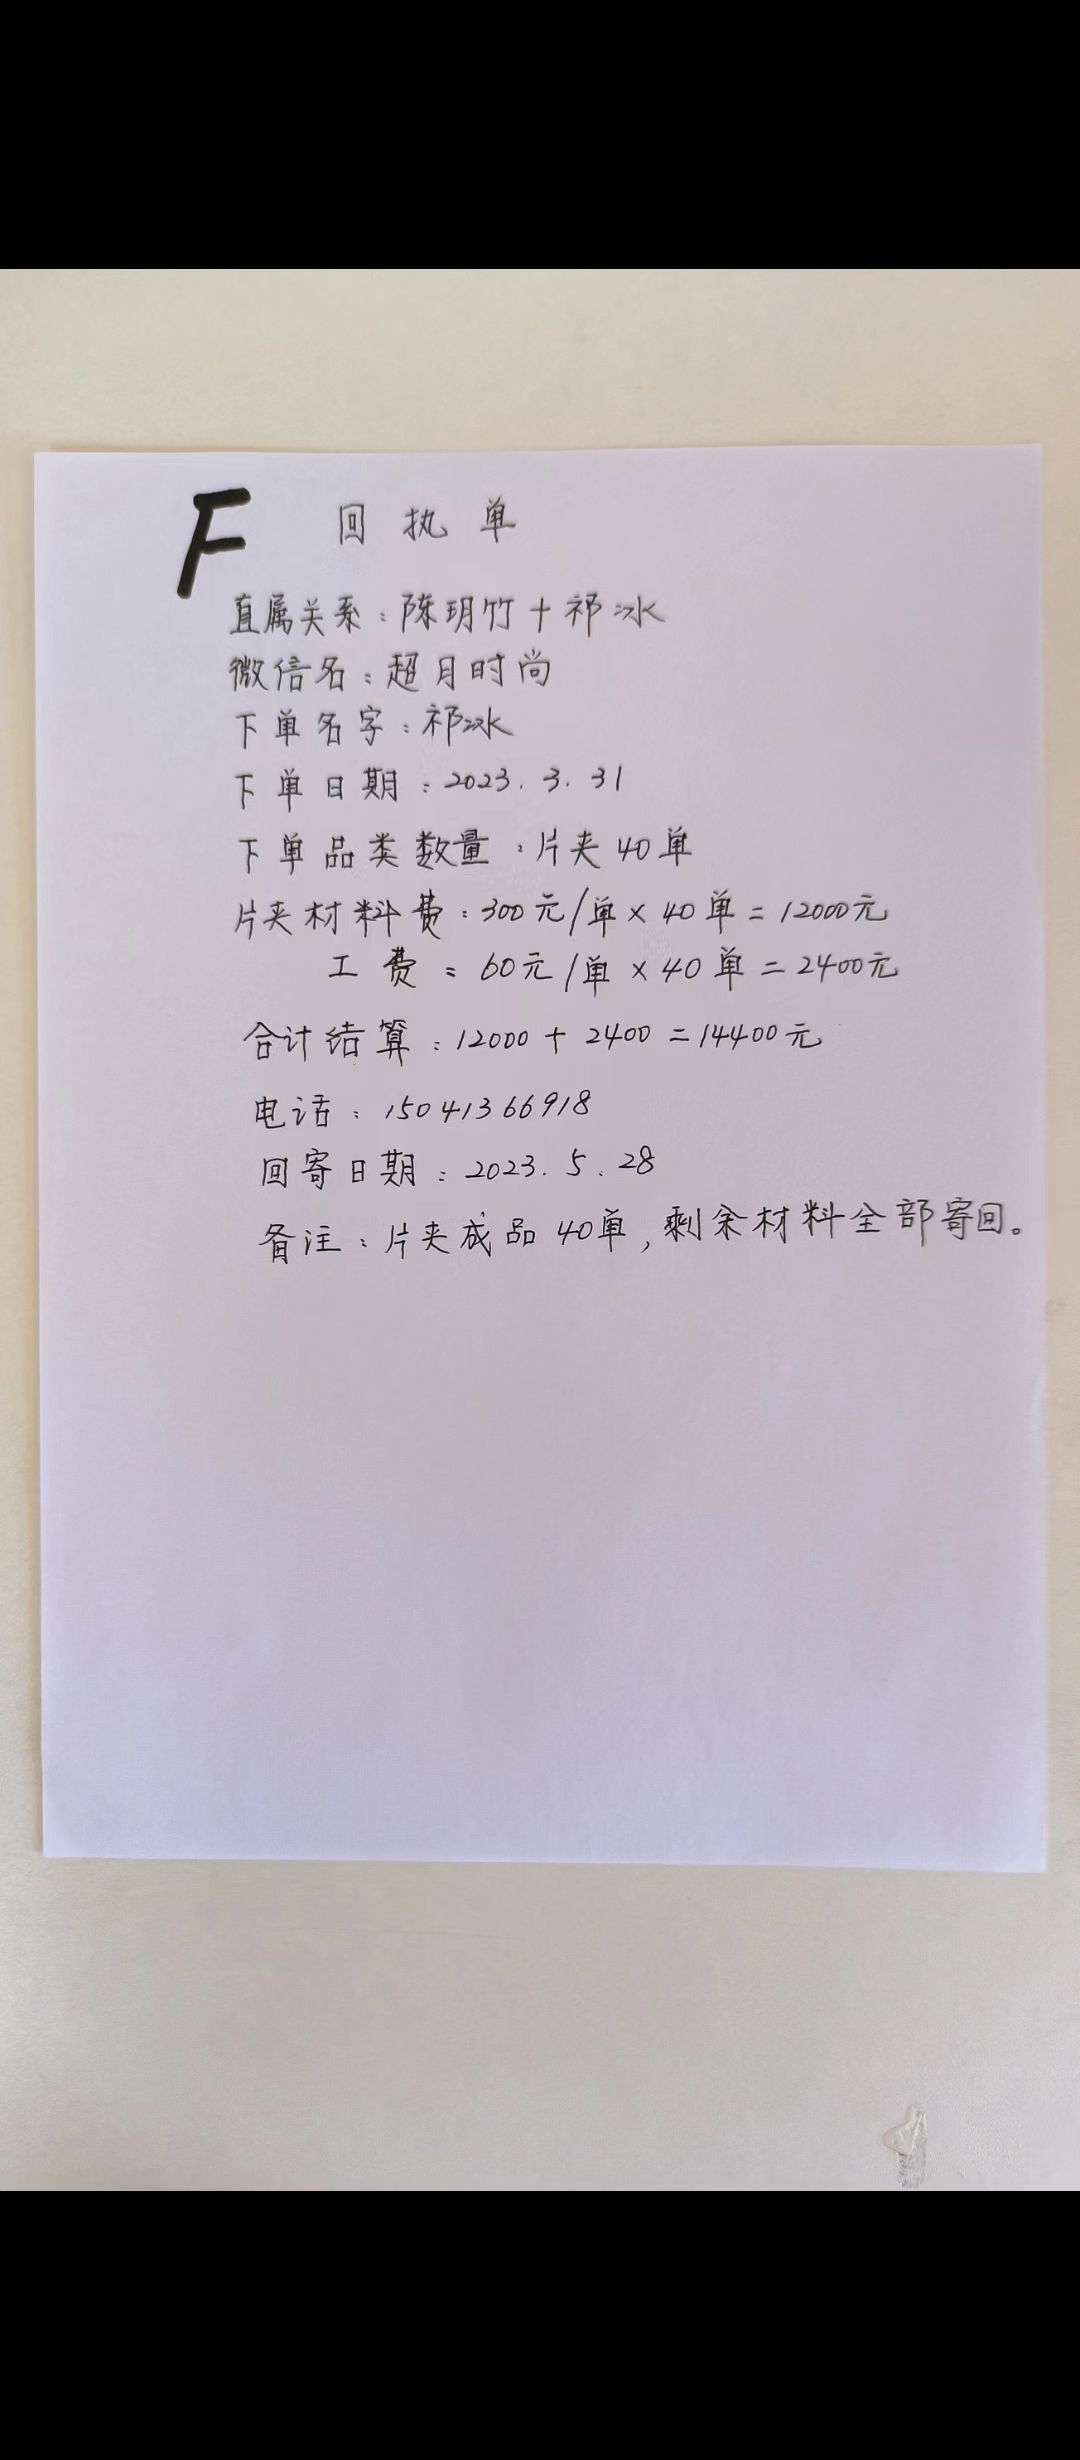 F 回执单
直属关系：陈玥竹+祁冰
微信名：超月时尚
下单名字：祁冰
下单日期：2023.3.31
下单品类数量：片夹40单
片夹材料费：300元/单×40单=12000元
工费：60元/单×40单=2400元
合计结算：12000+2400=14400元
电话：15041366918
回寄日期：2023.5.28
备注：片夹成品40单,剩余材料全部寄回。